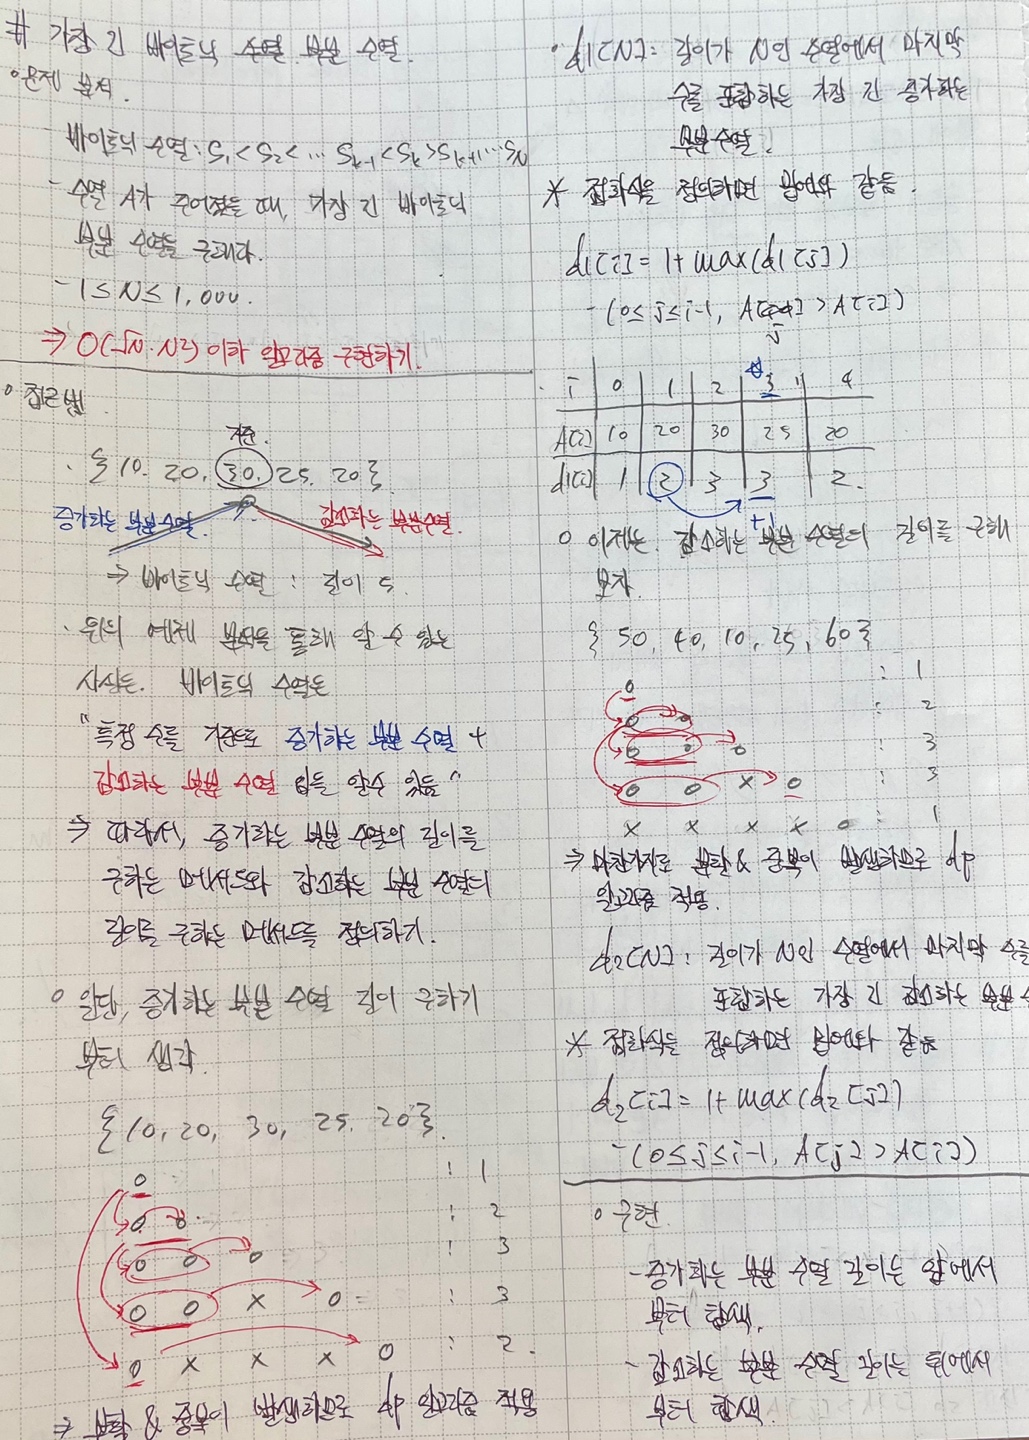 # 가장 긴 바이토닉 수열 부분 수열.
◦문제 분석.
바이토닉 수열 : S₁ < S₂ < ... Sₖ₋₁ < Sₖ > Sₖ₊₁ ... S_N
- 수열 A가 주어졌을 때, 가장 긴 바이토닉
부분 수열을 구해라.
- 1 ≤ N ≤ 1,000.
⇒ 이하 알고리즘 구현하기.
◦ 접근법
기준.
· { 10. 20, 30, 25, 20 }
증가하는 부분수열. 감소하는 부분수열.
→ 바이토닉 수열 : 길이 5
· 위의 예제 분석을 통해 알 수 있는
사실은. 바이토닉 수열은
" 특정 수를 기준으로 증가하는 부분 수열 +
감소하는 부분 수열 임을 알수 있음 "
⇒ 따라서, 증가하는 부분 수열의 길이를
구하는 메서드와 감소하는 부분 수열의
길이를 구하는 메서드를 정의하기.
◦ 일단, 증가하는 부분 수열 길이 구하기
부터 생각.
{ 10, 20, 30, 25, 20 }.
o : 1
o o : 2
o o o : 3
o o x o : 3
o x x x o : 2.
⇒ 분할 & 중복이 발생하므로 dp 알고리즘 적용
· d1[N] : 길이가 N인 수열에서 마지막
수를 포함하는 가장 긴 증가하는
부분수열.
* 점화식을 정의하면 밑에와 같음.
d1[i] = 1 + max(d1[j])
- (0 ≤ j ≤ i-1, A[j] > A[i])
i 0 1 2 3 4
A[i] 10 20 30 25 20
d1[i] 1 2 3 3 2.
+1
◦ 이제는. 감소하는 부분 수열의 길이를 구해
보자.
{ 50, 40, 10, 25, 60 }
o : 1
o o : 2
o o o : 3
o o x o : 3
x x x x o : 1
⇒ 마찬가지로 분할 & 중복이 발생하므로 dp
알고리즘 적용.
d₂[N] : 길이가 N인 수열에서 마지막 수를
포함하는 가장 긴 감소하는 부분
* 점화식을 정의하면 밑에와 같음
d₂[i] = 1 + max(d₂[j])
- (0 ≤ j ≤ i-1, A[j] > A[i])
◦ 구현.
- 증가하는 부분 수열 길이는 앞에서
부터 탐색.
- 감소하는 부분 수열 길이는 뒤에서
부터 탐색.